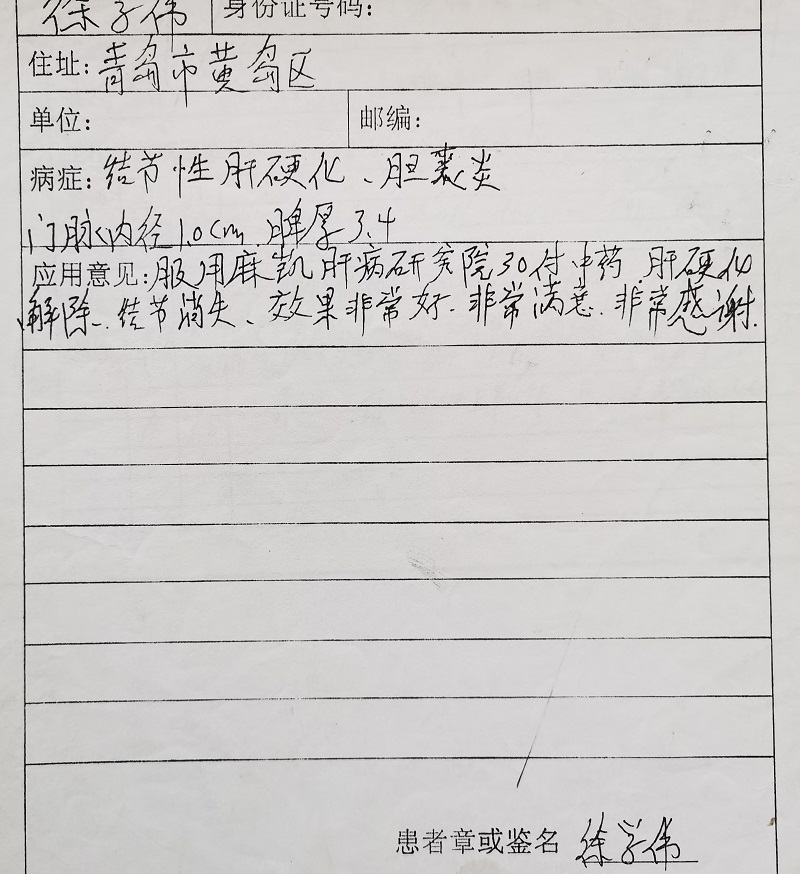 徐学伟 身份证号码:
住址: 青岛市黄岛区
单位: 邮编:
病症: 结节性肝硬化、胆囊炎
门脉内径1.0cm 脾厚3.4
应用意见: 服用麻凯肝病研究院30付中药 肝硬化
解除. 结节消失、效果非常好. 非常满意. 非常感谢.
患者章或鉴名 徐学伟